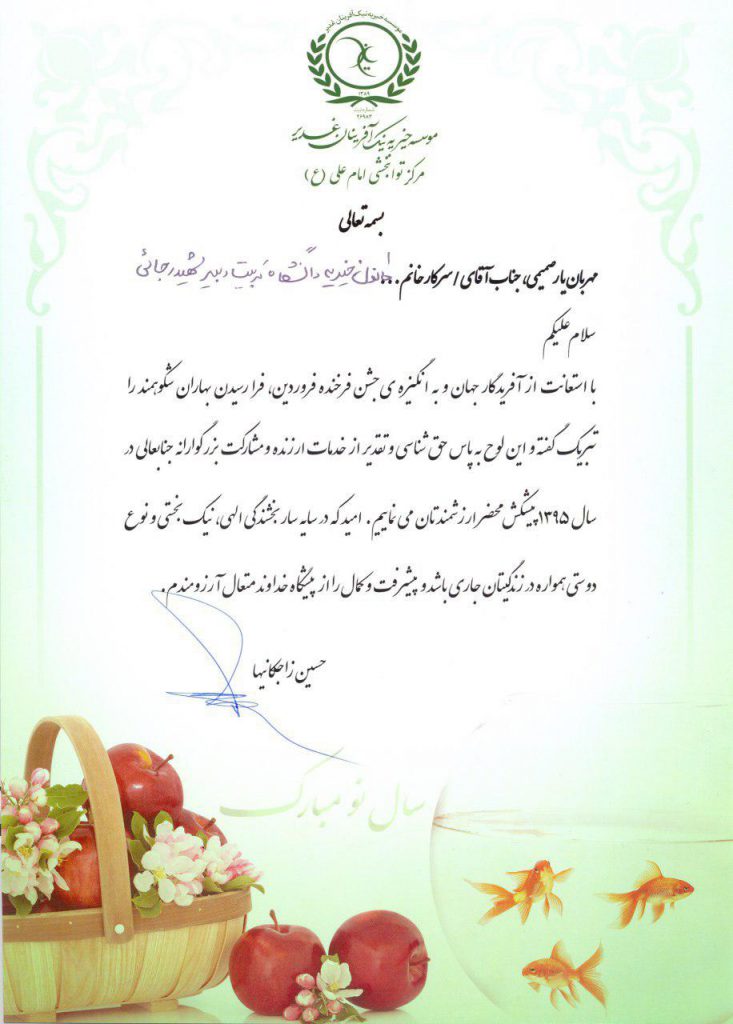 موسسه خیریه نیک آفرینان غدیر
۱۳۸۹
شماره ثبت
۲۶۹۸۳
موسسه خیریه نیک آفرینان غدیر
مرکز توانبخشی امام علی (ع)
بسمه تعالی
مهربان یار صمیمی، جناب آقای / سرکار خانم . . . کانون خیریه دانشگاه تربیت دبیر شهید رجائی
سلام علیکم
با استعانت از آفریدگار جهان و به انگیزه ی جشن فرخنده فروردین، فرا رسیدن بهاران شکوهمند را
تبریک گفته و این لوح به پاس حق شناسی و تقدیر از خدمات ارزنده و مشارکت بزرگوارانه جنابعالی در
سال ۱۳۹۵ پیشکش محضر ارزشمندتان می نماییم . امید که در سایه سار بخشندگی الهی، نیک بختی و نوع
دوستی همواره در زندگیتان جاری باشد و پیشرفت و کمال را از پیشگاه خداوند متعال آرزومندم .
حسین زاجکانیها
سال نو مبارک